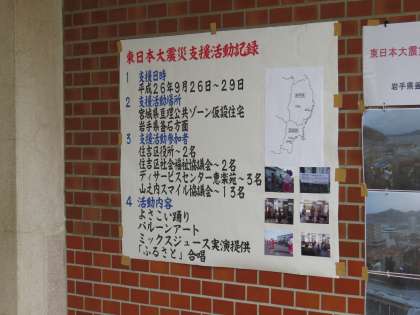 東日本大震災支援活動記録
1 支援日時
平成26年9月26日~29日
2 支援活動場所
宮城県亘理公共ゾーン仮設住宅
岩手県釜石方面
3 支援活動参加者
住吉区役所~2名
住吉区社会福祉協議会~2名
デイサービスセンター恵楽苑~3名
山之内スマイル協議会~13名
4 活動内容
よさこい踊り
バルーンアート
ミックスジュース実演提供
「ふるさと」合唱
東日本大震
岩手県釜